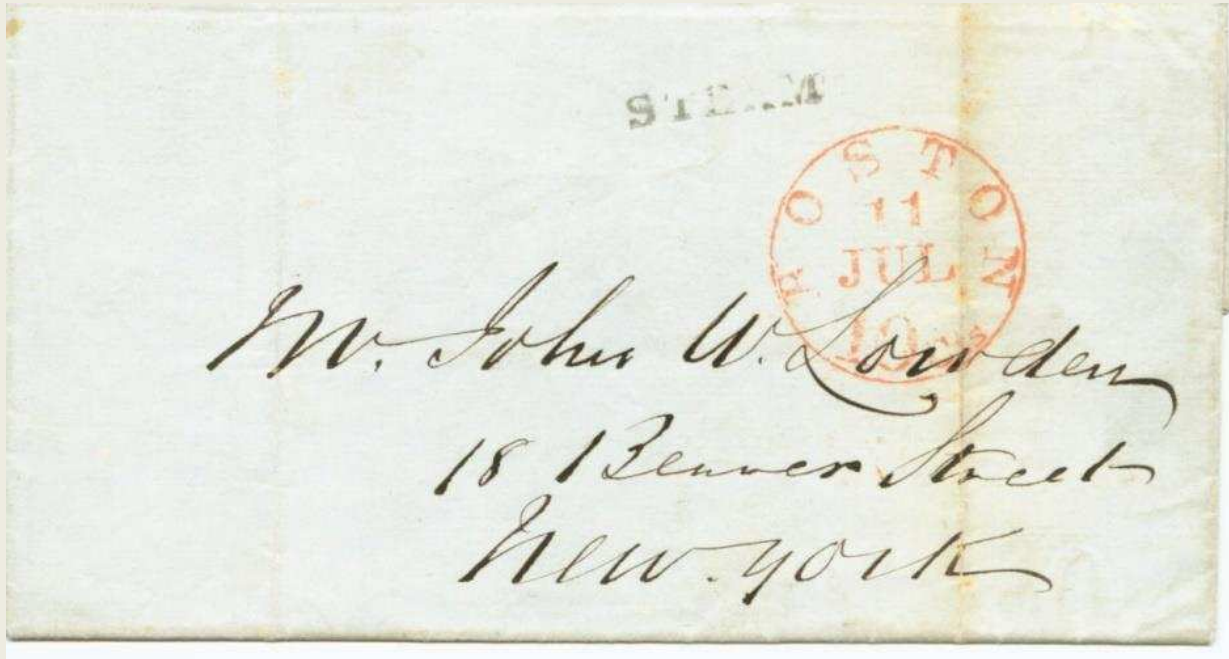 STEAM
BOSTON
11
JUL
Mr. John W. Lowden
18 Beaver Street
New York